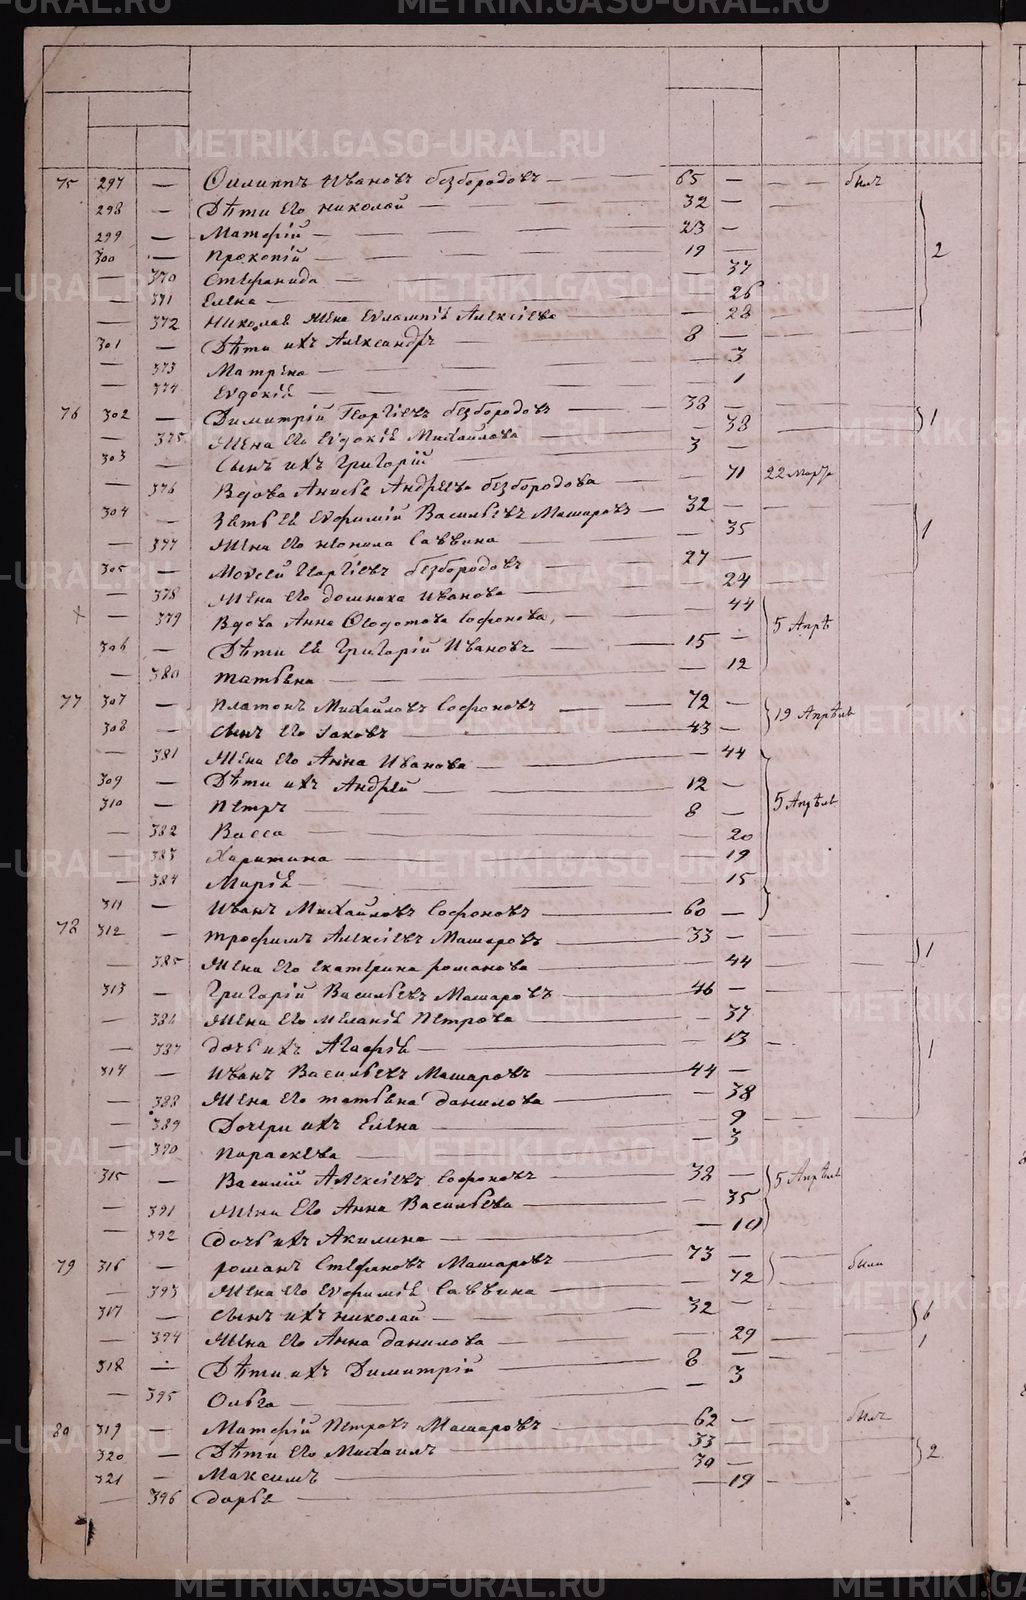 75 297 — Филиппъ Ивановъ безбородовъ — 65 — — былъ
298 — Дѣти Его николай — 32 —
299 — Матфій — 23 —
300 — Прокопій — 19 — 2
— 370 Стефанида — 37
— 371 Елена — 26
— 372 Николая жена Евлампія Алексіева — 28
301 — Дѣти ихъ Александръ — 8 —
— 373 Матрена — 3
— 374 Евдокія — 1
76 302 — Димитрій Георгіевъ безбородовъ — 38 — 1
— 375 жена Его Евдокія Михайлова — 38
303 — сынъ ихъ Григорій — 3 —
— 376 Вдова Анисья Андреева безбородова — 71 22 марта
304 — Зять Ея Евфимій Васильевъ Машаровъ — 32 —
— 377 жена Его неонила Саввина — 35 1
305 — Моѵсей Георгіевъ безбородовъ — 27 —
— 378 жена Его домника Иванова — 24
— 379 Вдова Анна Ѳеодотова Софонова, — 44 5 Апрѣ
306 — Дѣти Ея Григорій Ивановъ — 15 —
— 380 татьяна — 12
77 307 — Платонъ Михайловъ Софоновъ — 72 — 19 Апрѣля
308 — сынъ Его Іаковъ — 43 —
— 381 жена Его Анна Иванова — 44
309 — Дѣти ихъ Андрей — 12 —
310 — Петръ 8 — 5 Апрѣля
— 382 Васса — 20
— 383 Харитина — 19
— 384 Марія — 15
311 — Иванъ Михайловъ Софоновъ — 60 —
78 312 — трофимъ Алексіевъ Машаровъ — 33 — 1
— 385 жена Его екатерина романова — 44
313 — Григорій Васильевъ Машаровъ — 46 —
— 386 жена Его Меланія Петрова — 37
— 387 дочь ихъ Агафія — 13 — 1
314 — Иванъ Васильевъ Машаровъ — 44 —
— 388 жена Его татьяна данилова — 38
— 389 Дочери ихъ Елена — 9
— 390 параскева — 3
315 — Василій Алексіевъ Софоновъ — 38 — 5 Апрѣля
— 391 жена Его Анна Васильева — 35
— 392 Дочь ихъ Акилина — 10
79 316 — романъ Стефановъ Машаровъ — 73 — были
— 393 жена Его Евфимія Саввина — 72
317 — сынъ ихъ николай — 32 — 6
— 394 жена Его Анна данилова — 29 — 1
318 — Дѣти ихъ Димитрій — 8 —
— 395 Ольга — 3
80 319 — Матфій Петровъ Машаровъ — 62 — былъ
320 — Дѣти Его Михаилъ — 33 — 2
321 — Максимъ — 30 —
— 396 дарья — 19
METRIKI.GASO-URAL.RU